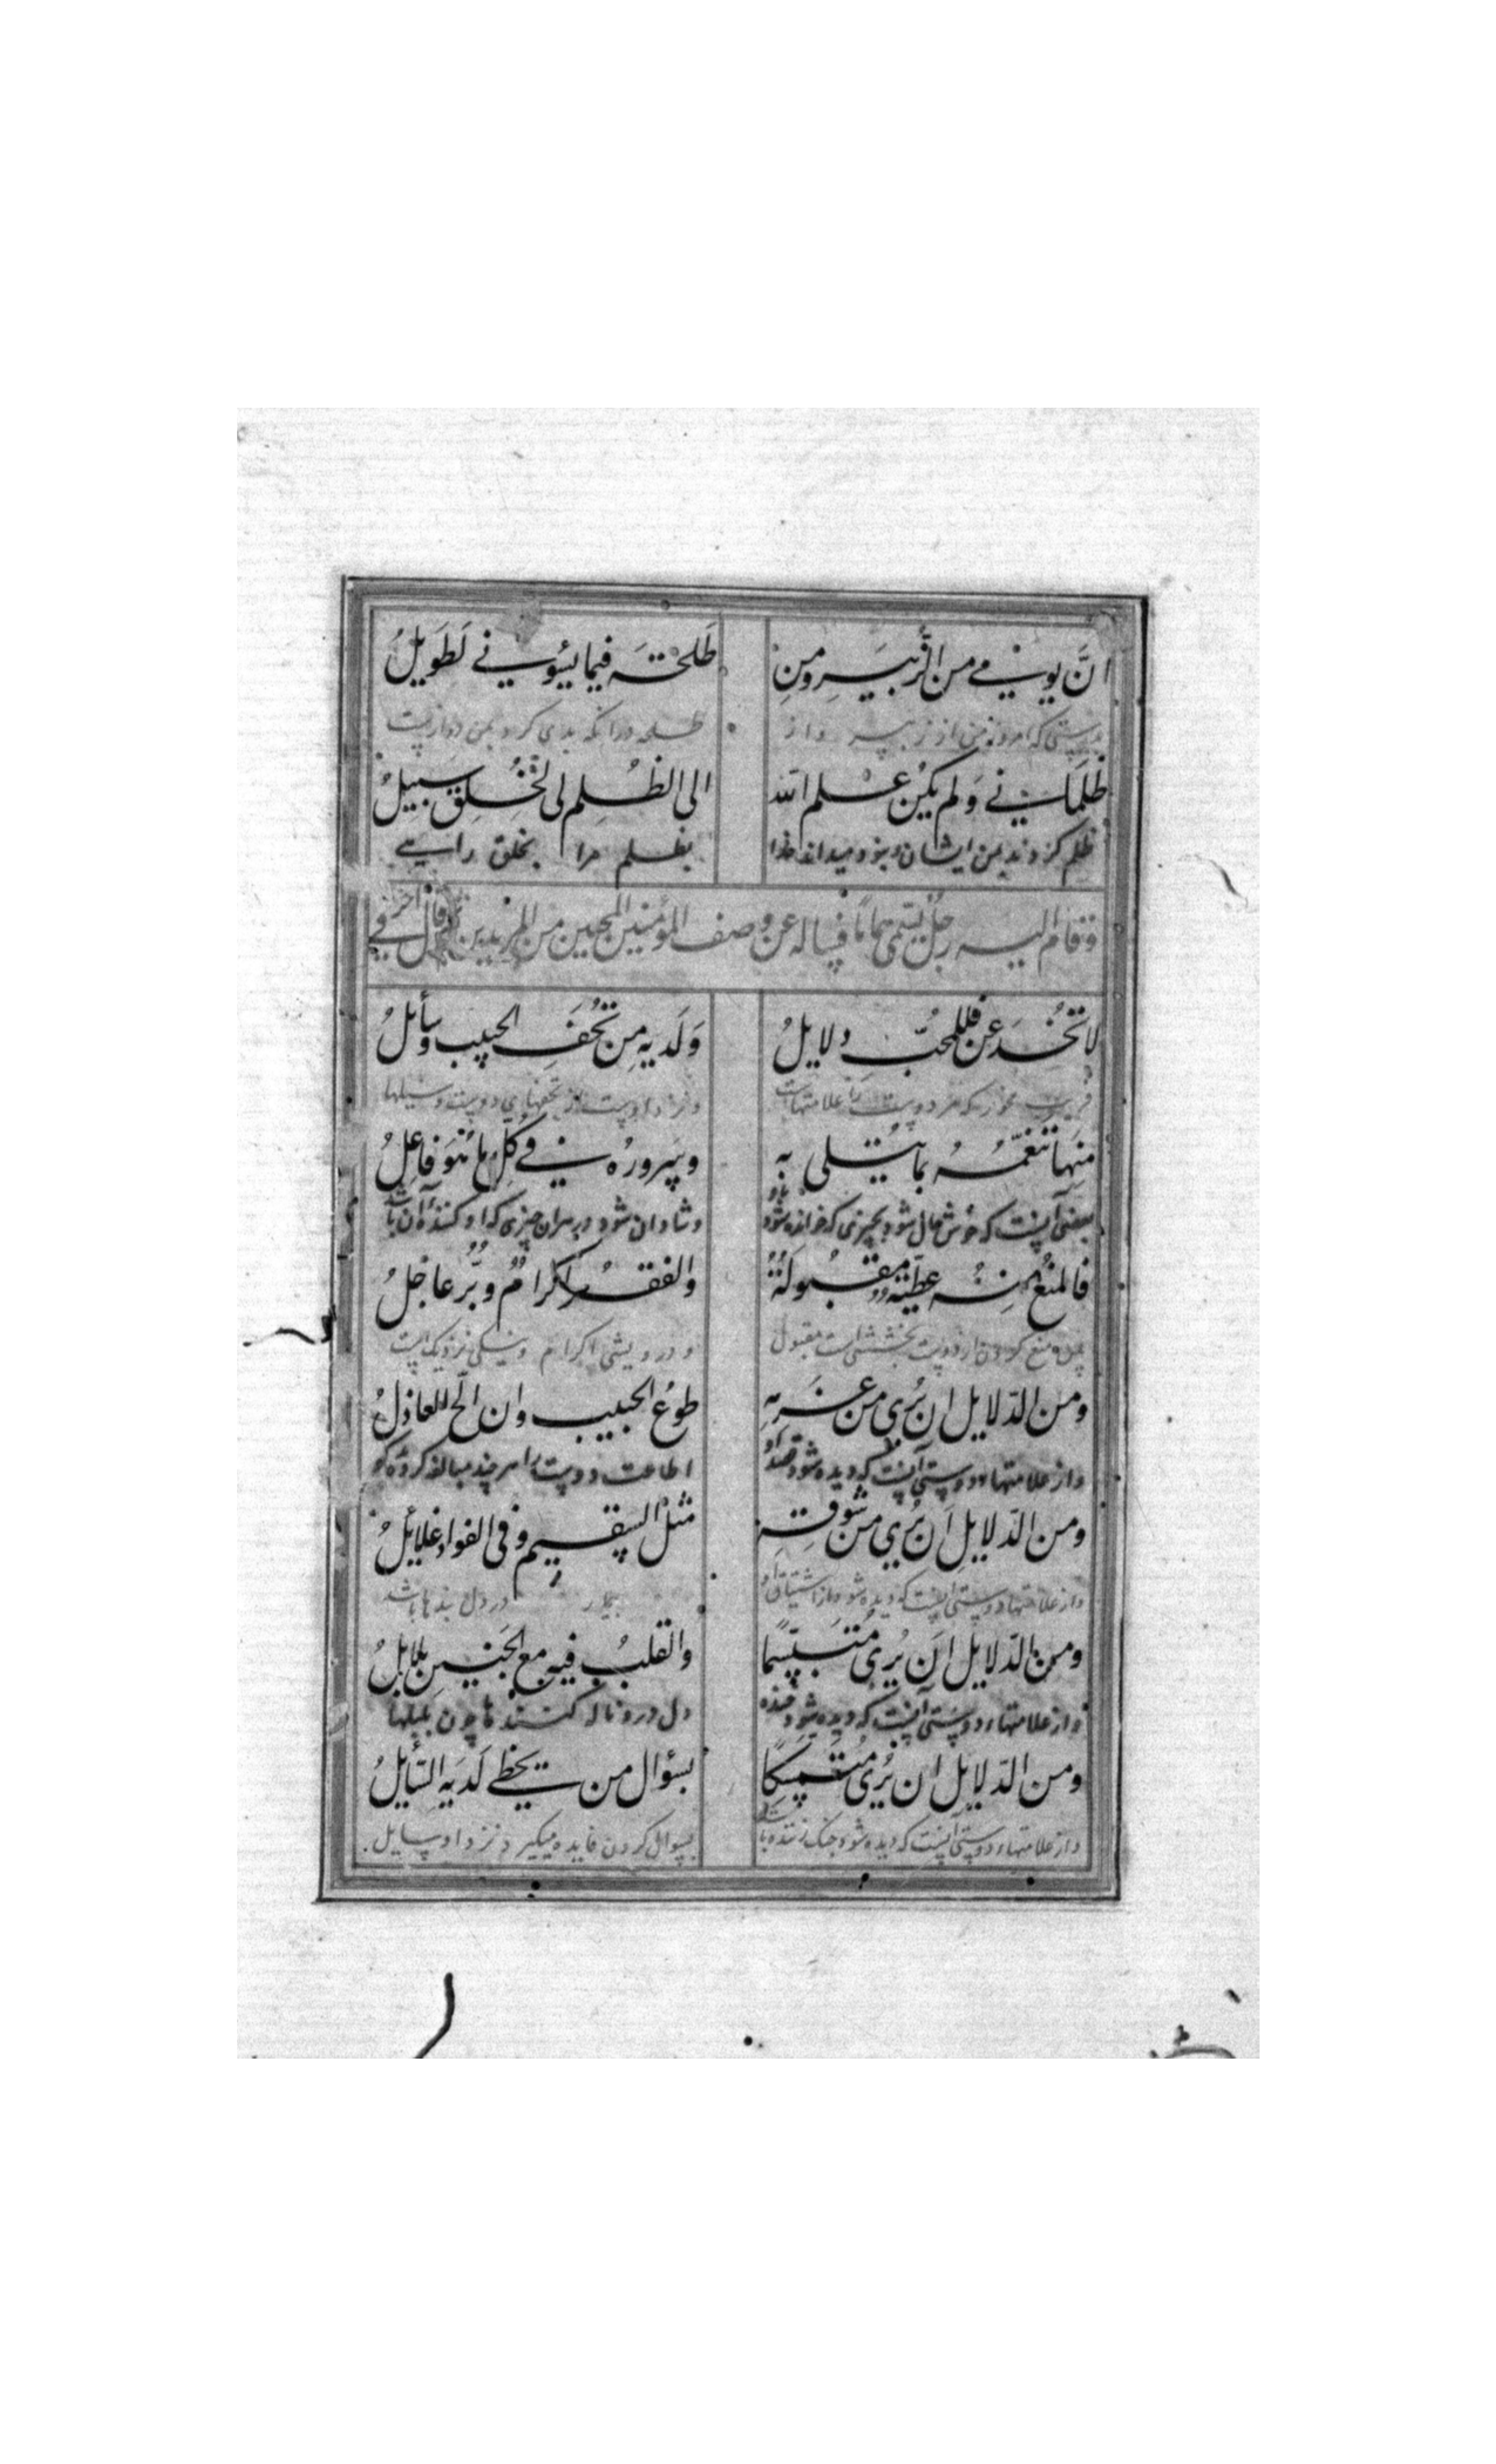 انَّ یومی من الزُّبَیرِ ومِن طَلحَتَه فیما یَسُوُنی لَطَوِیلُ
بدرستی که امروز من از زبیر و از طلحه در آنکه بدی کرد بمن دراز است
ظَلَمَانی وَلم یَکُن عَلِم الله الی الظُلمِ لی لِخَلقٍ سَبِیلُ
ظلم کردند بمن ایشان و نبود میداند خدا بظلم مرا بخلق راهی
وقام الیه رجلٌ یسمّی همامًا فساله عن وصف المؤمنین المحبین من المریدین قال اخر فی
لا تُخدَعَن فللمُحبّ دلایلُ وَلَدیهِ مِن تُحَفِ الحبیب وسائلُ
فریب مخور که مر دوست را علامتهاست و نزد او است از تحفهای دوست وسیلها
مِنهَا تَنَعُّمُهُ بمایُبتلی به وسَرورُه فی کُلِّ ما هُوَ فاعِلُ
بعضی آنست که خوش حال شود بچیزی که شود و شادان شود در هران چیزی که او کننده آن باشد
فالمنعُ مِنهُ عطیّةٌ مقبُولَةٌ والفقرُ اکرامٌ وبُرّ عاجلُ
پس منع کردن از دوست بخششی است مقبول و درویشی اکرام و نیکی نزدیک است
ومن الدّلایل ان یُری من عَزمِهِ طوعُ الحبیب وان الَحّ العاذلُ
و از علامتهاء دوستی آنست که دیده شود قصد او اطاعت دوست را هر چند مبالغه کرده
ومن الدّلایلِ اَن یُری من شوقِه مثلُ السقیمِ وفی الفوادِ غلایلُ
و از علامتهاء دوستی آنست که دیده شود از اشتیاق او بیمار در دل بندها باشد
ومن الدّلایل اَن یُری مُتَبَسِّمًا والقلبُ فیهِ مع الحَنینِ بلابلُ
و از علامتهاء دوستی آنست که دیده شود خنده دل در و ناله کنندها چون بلبلها
ومن الدّلایل ان یُری مُتَمَسِّکًا بسؤال من یحظی لَدَیهِ السّایلُ
و از علامتهاء دوستی آنست که دیده شود چنک زننده باشد بسوال کردن فایده میگیرد نزد او سایل